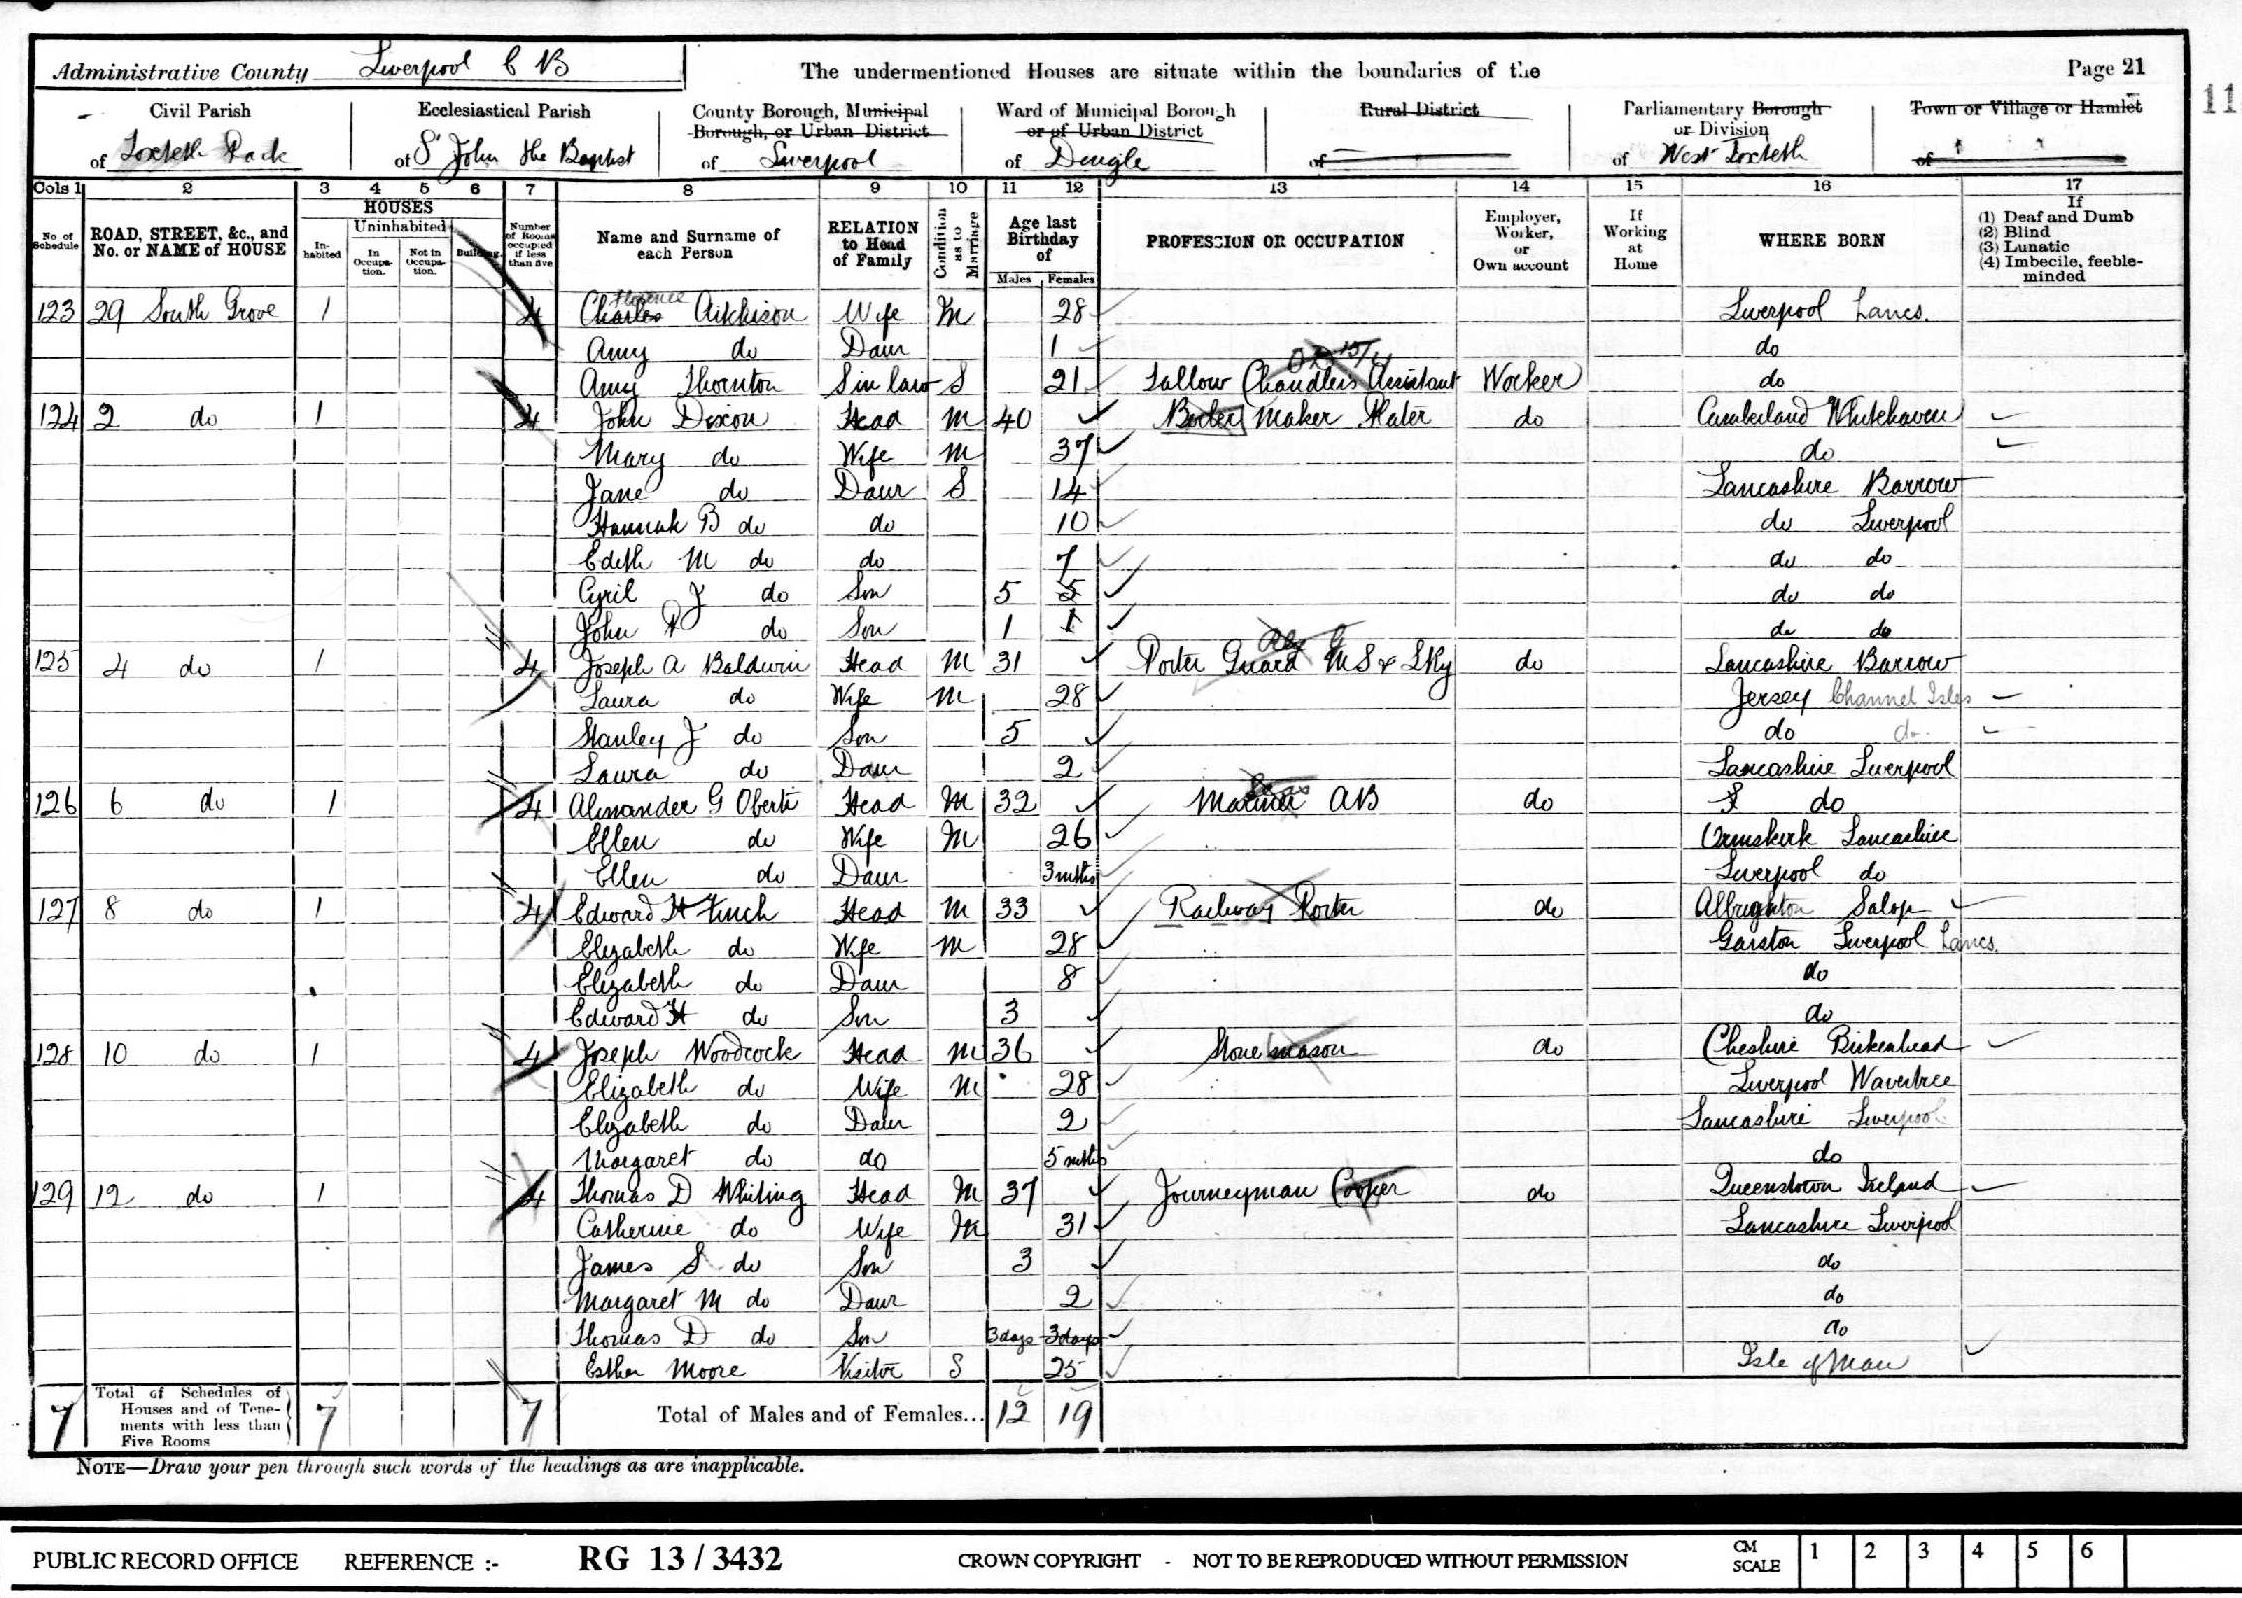 Administrative County Liverpool C B The undermentioned Houses are situate within the boundaries of the Page 21
11
Civil Parish Ecclesiastical Parish County Borough, Municipal Borough, or Urban District Ward of Municipal Borough or of Urban District Rural District Parliamentary Borough or Division Town or Village or Hamlet
of Toxteth Park of St John the Baptist of Liverpool of Dingle of of West Toxteth of
Cols 1 2 3 4 5 6 7 8 9 10 11 12 13 14 15 16 17
No of Schedule ROAD, STREET, &c., and No. or NAME of HOUSE HOUSES Inhabited Uninhabited In Occupation. Not in Occupation. Building. Number of Rooms occupied if less than five Name and Surname of each Person RELATION to Head of Family Condition as to Marriage Age last Birthday of Males Females PROFESSION OR OCCUPATION Employer, Worker, or Own account If Working at Home WHERE BORN If (1) Deaf and Dumb (2) Blind (3) Lunatic (4) Imbecile, feeble-minded
Florence
123 29 South Grove 1 4 Charles Aitkhison Wife M 28 Liverpool Lancs.
Amy do Daur 1 do
Amy Thornton S in law S 21 Tallow Chandlers Assistant Worker do
124 2 do 1 4 John Dixon Head M 40 Boiler Maker Plater do Cumberland Whitehaven
Mary do Wife M 37 do
Jane do Daur S 14 Lancashire Barrow
Hannah B do do 10 do Liverpool
Edith M do do 7 do do
Cyril J do Son 5 5 do do
John P do Son 1 1 do do
125 4 do 1 4 Joseph A Baldwin Head M 31 Porter Guard M S & L Ry do Lancashire Barrow
Laura do Wife M 28 Jersey Channel Isles
Stanley J do Son 5 do do
Laura do Daur 2 Lancashire Liverpool
126 6 do 1 4 Alexander G Oberti Head M 32 Mariner AB do do
Ellen do Wife M 26 Ormskirk Lancashire
Ellen do Daur 3 mths Liverpool do
127 8 do 1 4 Edward H Finch Head M 33 Railway Porter do Albrighton Salop
Elizabeth do Wife M 28 Garston Liverpool Lancs.
Elizabeth do Daur 8 do
Edward H do Son 3 do
128 10 do 1 4 Joseph Woodcock Head M 36 Stone mason do Cheshire Birkenhead
Elizabeth do Wife M 28 Liverpool Wavertree
Elizabeth do Daur 2 Lancashire Liverpool
Margaret do do 5 mths do
129 12 do 1 4 Thomas D Whiting Head M 37 Journeyman Cooper do Queenstown Ireland
Catherine do Wife M 31 Lancashire Liverpool
James S do Son 3 do
Margaret M do Daur 2 do
Thomas D do Son 3 days 3 days do
Esther Moore Visitor S 25 Isle of Man
7 Total of Schedules of Houses and of Tenements with less than Five Rooms 7 7 Total of Males and of Females... 12 19
NOTE—Draw your pen through such words of the headings as are inapplicable.
PUBLIC RECORD OFFICE REFERENCE :- RG 13 / 3432 CROWN COPYRIGHT - NOT TO BE REPRODUCED WITHOUT PERMISSION CM SCALE 1 2 3 4 5 6